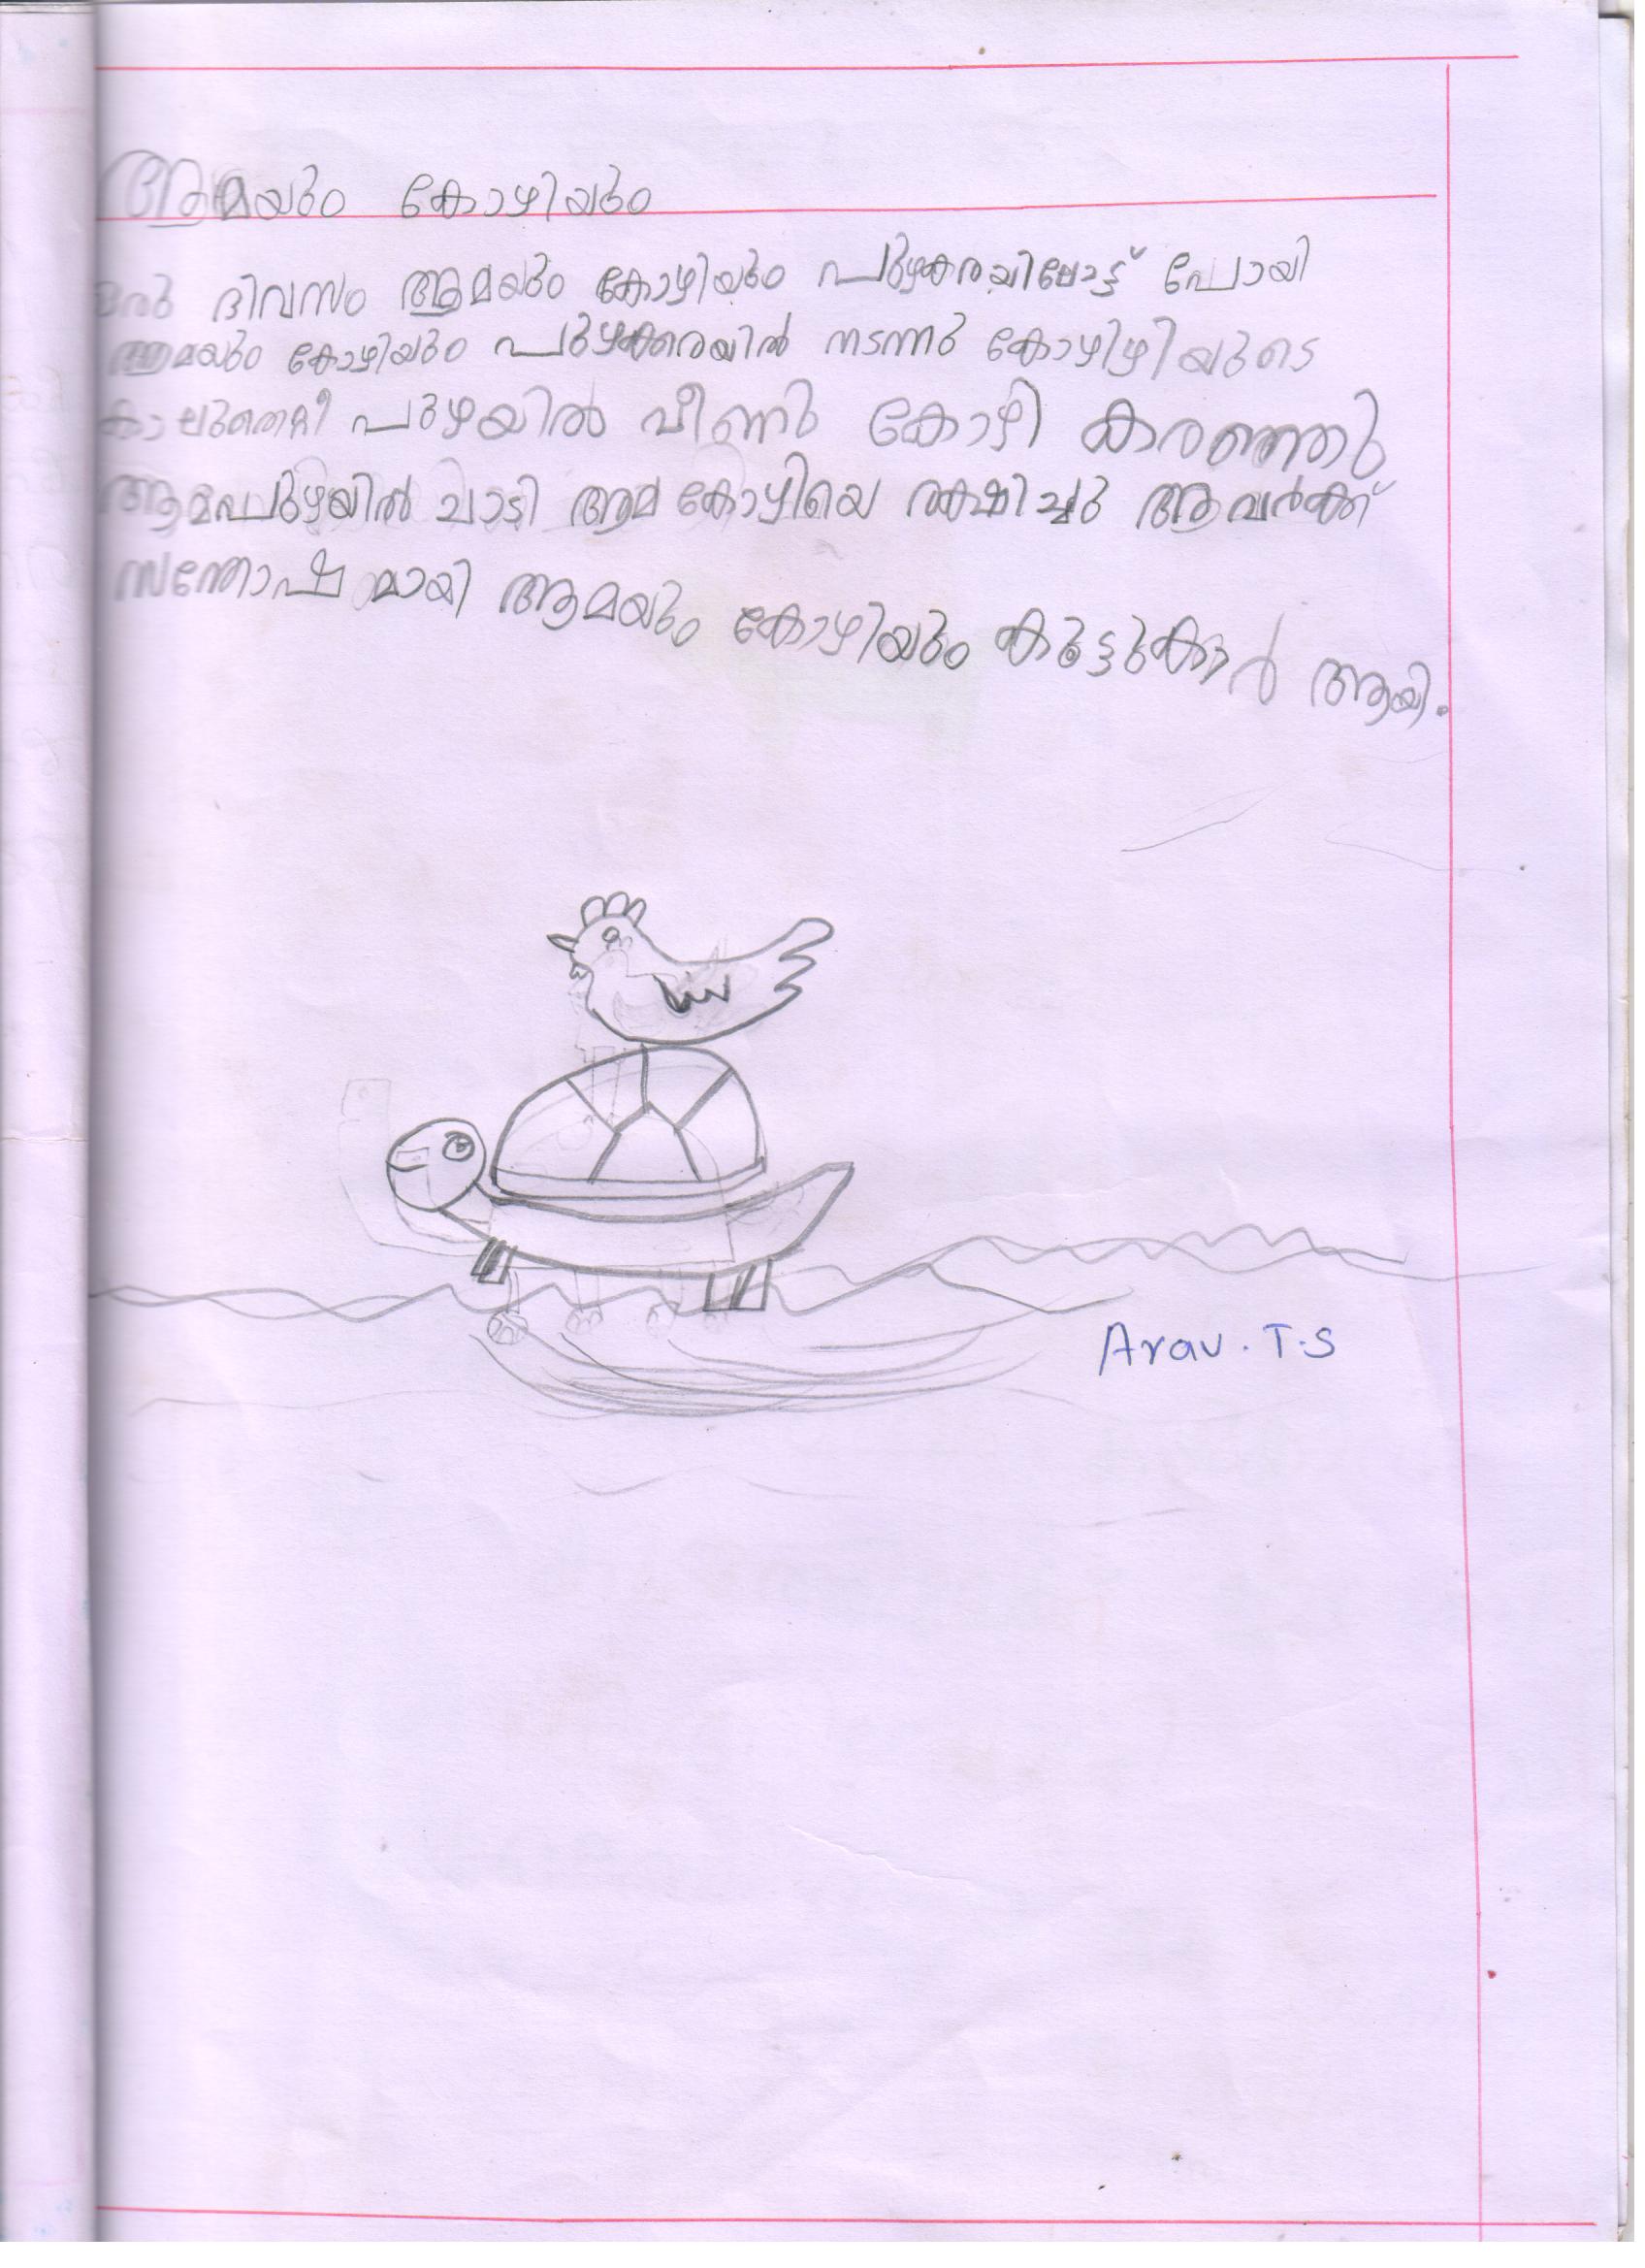 ആമയും കോഴിയും
ഒരു ദിവസം ആമയും കോഴിയും പുഴകരയിലോട്ട് പോയി
ആമയും കോഴിയും പുഴക്കരെയിൽ നടന്നു കോഴിഴിയുടെ
കാലുതെറ്റി പുഴയിൽ വീണു കോഴി കരഞ്ഞു
ആമപുഴയിൽ ചാടി ആമ കോഴിയെ രക്ഷിച്ചു അവർക്ക്
സന്തോഷ മായി ആമയും കോഴിയും കൂട്ടുകാർ ആയി.
Arav. T.S